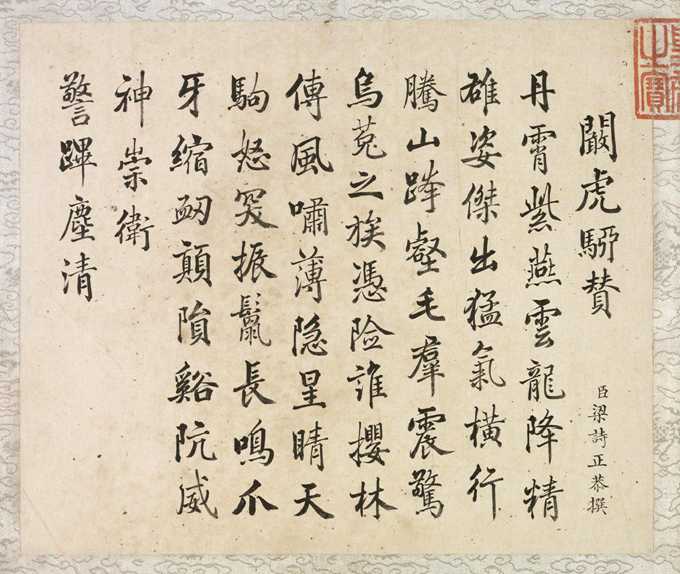 之寶
闞虎駵賛
臣梁詩正恭撰
丹霄紫燕雲龍降精
雄姿傑出猛氣橫行
騰山跨壑毛羣震驚
烏菟之族憑險誰攖林
傳風嘯薄隱星睛天
駒怒突振鬣長鳴爪
牙縮衂顛隕谿阬威
神崇衛
警蹕塵清